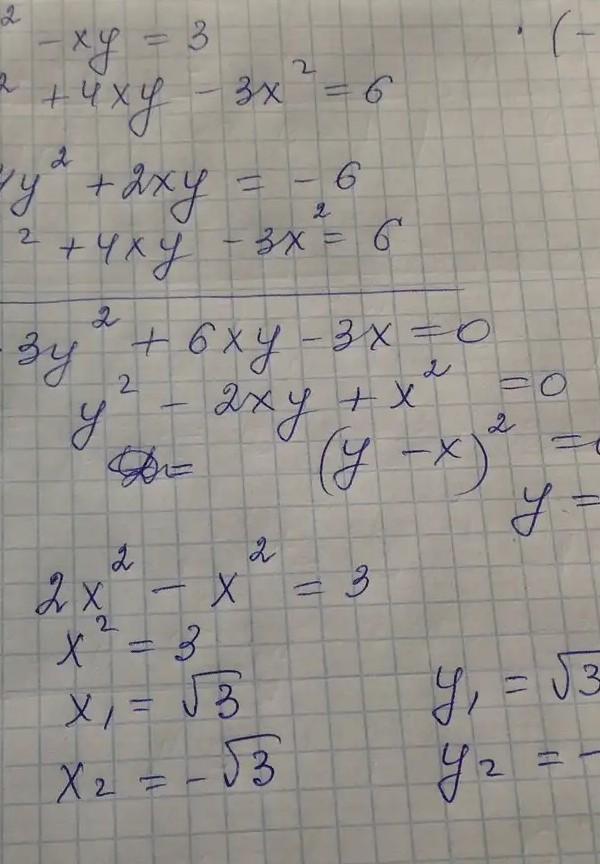 ² - xy = 3 · (-
² + 4xy - 3x² = 6
4y² + 2xy = - 6
² + 4xy - 3x² = 6
- 3y² + 6xy - 3x = 0
y² - 2xy + x² = 0
(y - x)² =
y =
2x² - x² = 3
x² = 3
x₁ = √3 y₁ = √3
x₂ = -√3 y₂ = -